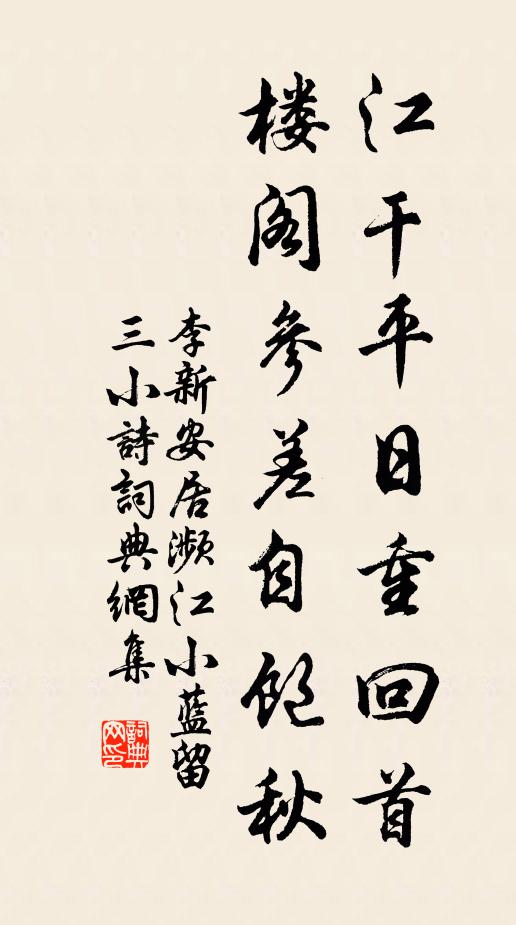 江干平日重回首
楼阁參差自饱秋
李新安居瀕江小藍留
三小詩詞典網集
詞典
网印